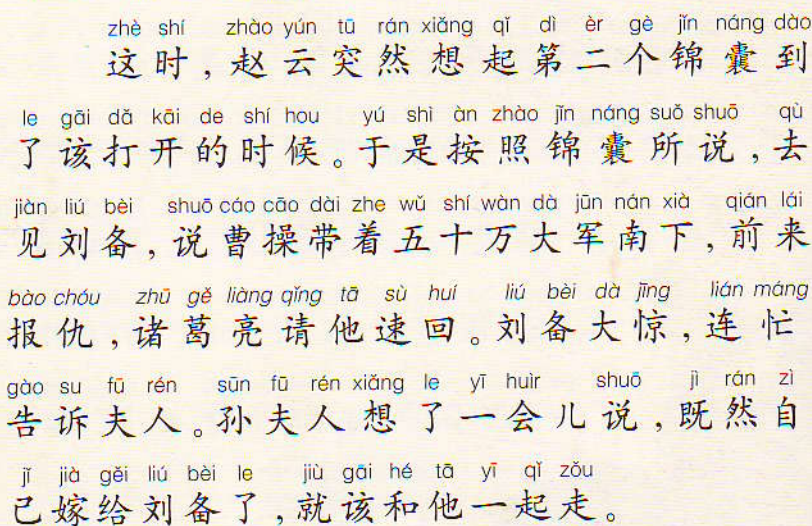 zhè shí zhào yún tū rán xiǎng qǐ dì èr gè jǐn náng dào
这时，赵云突然想起第二个锦囊到
le gāi dǎ kāi de shí hou yú shì àn zhào jǐn náng suǒ shuō qù
了该打开的时候。于是按照锦囊所说，去
jiàn liú bèi shuō cáo cāo dài zhe wǔ shí wàn dà jūn nán xià qián lái
见刘备，说曹操带着五十万大军南下，前来
bào chóu zhū gě liàng qǐng tā sù huí liú bèi dà jīng lián máng
报仇，诸葛亮请他速回。刘备大惊，连忙
gào su fū rén sūn fū rén xiǎng le yī huìr shuō jì rán zì
告诉夫人。孙夫人想了一会儿说，既然自
jǐ jià gěi liú bèi le jiù gāi hé tā yī qǐ zǒu
己嫁给刘备了，就该和他一起走。